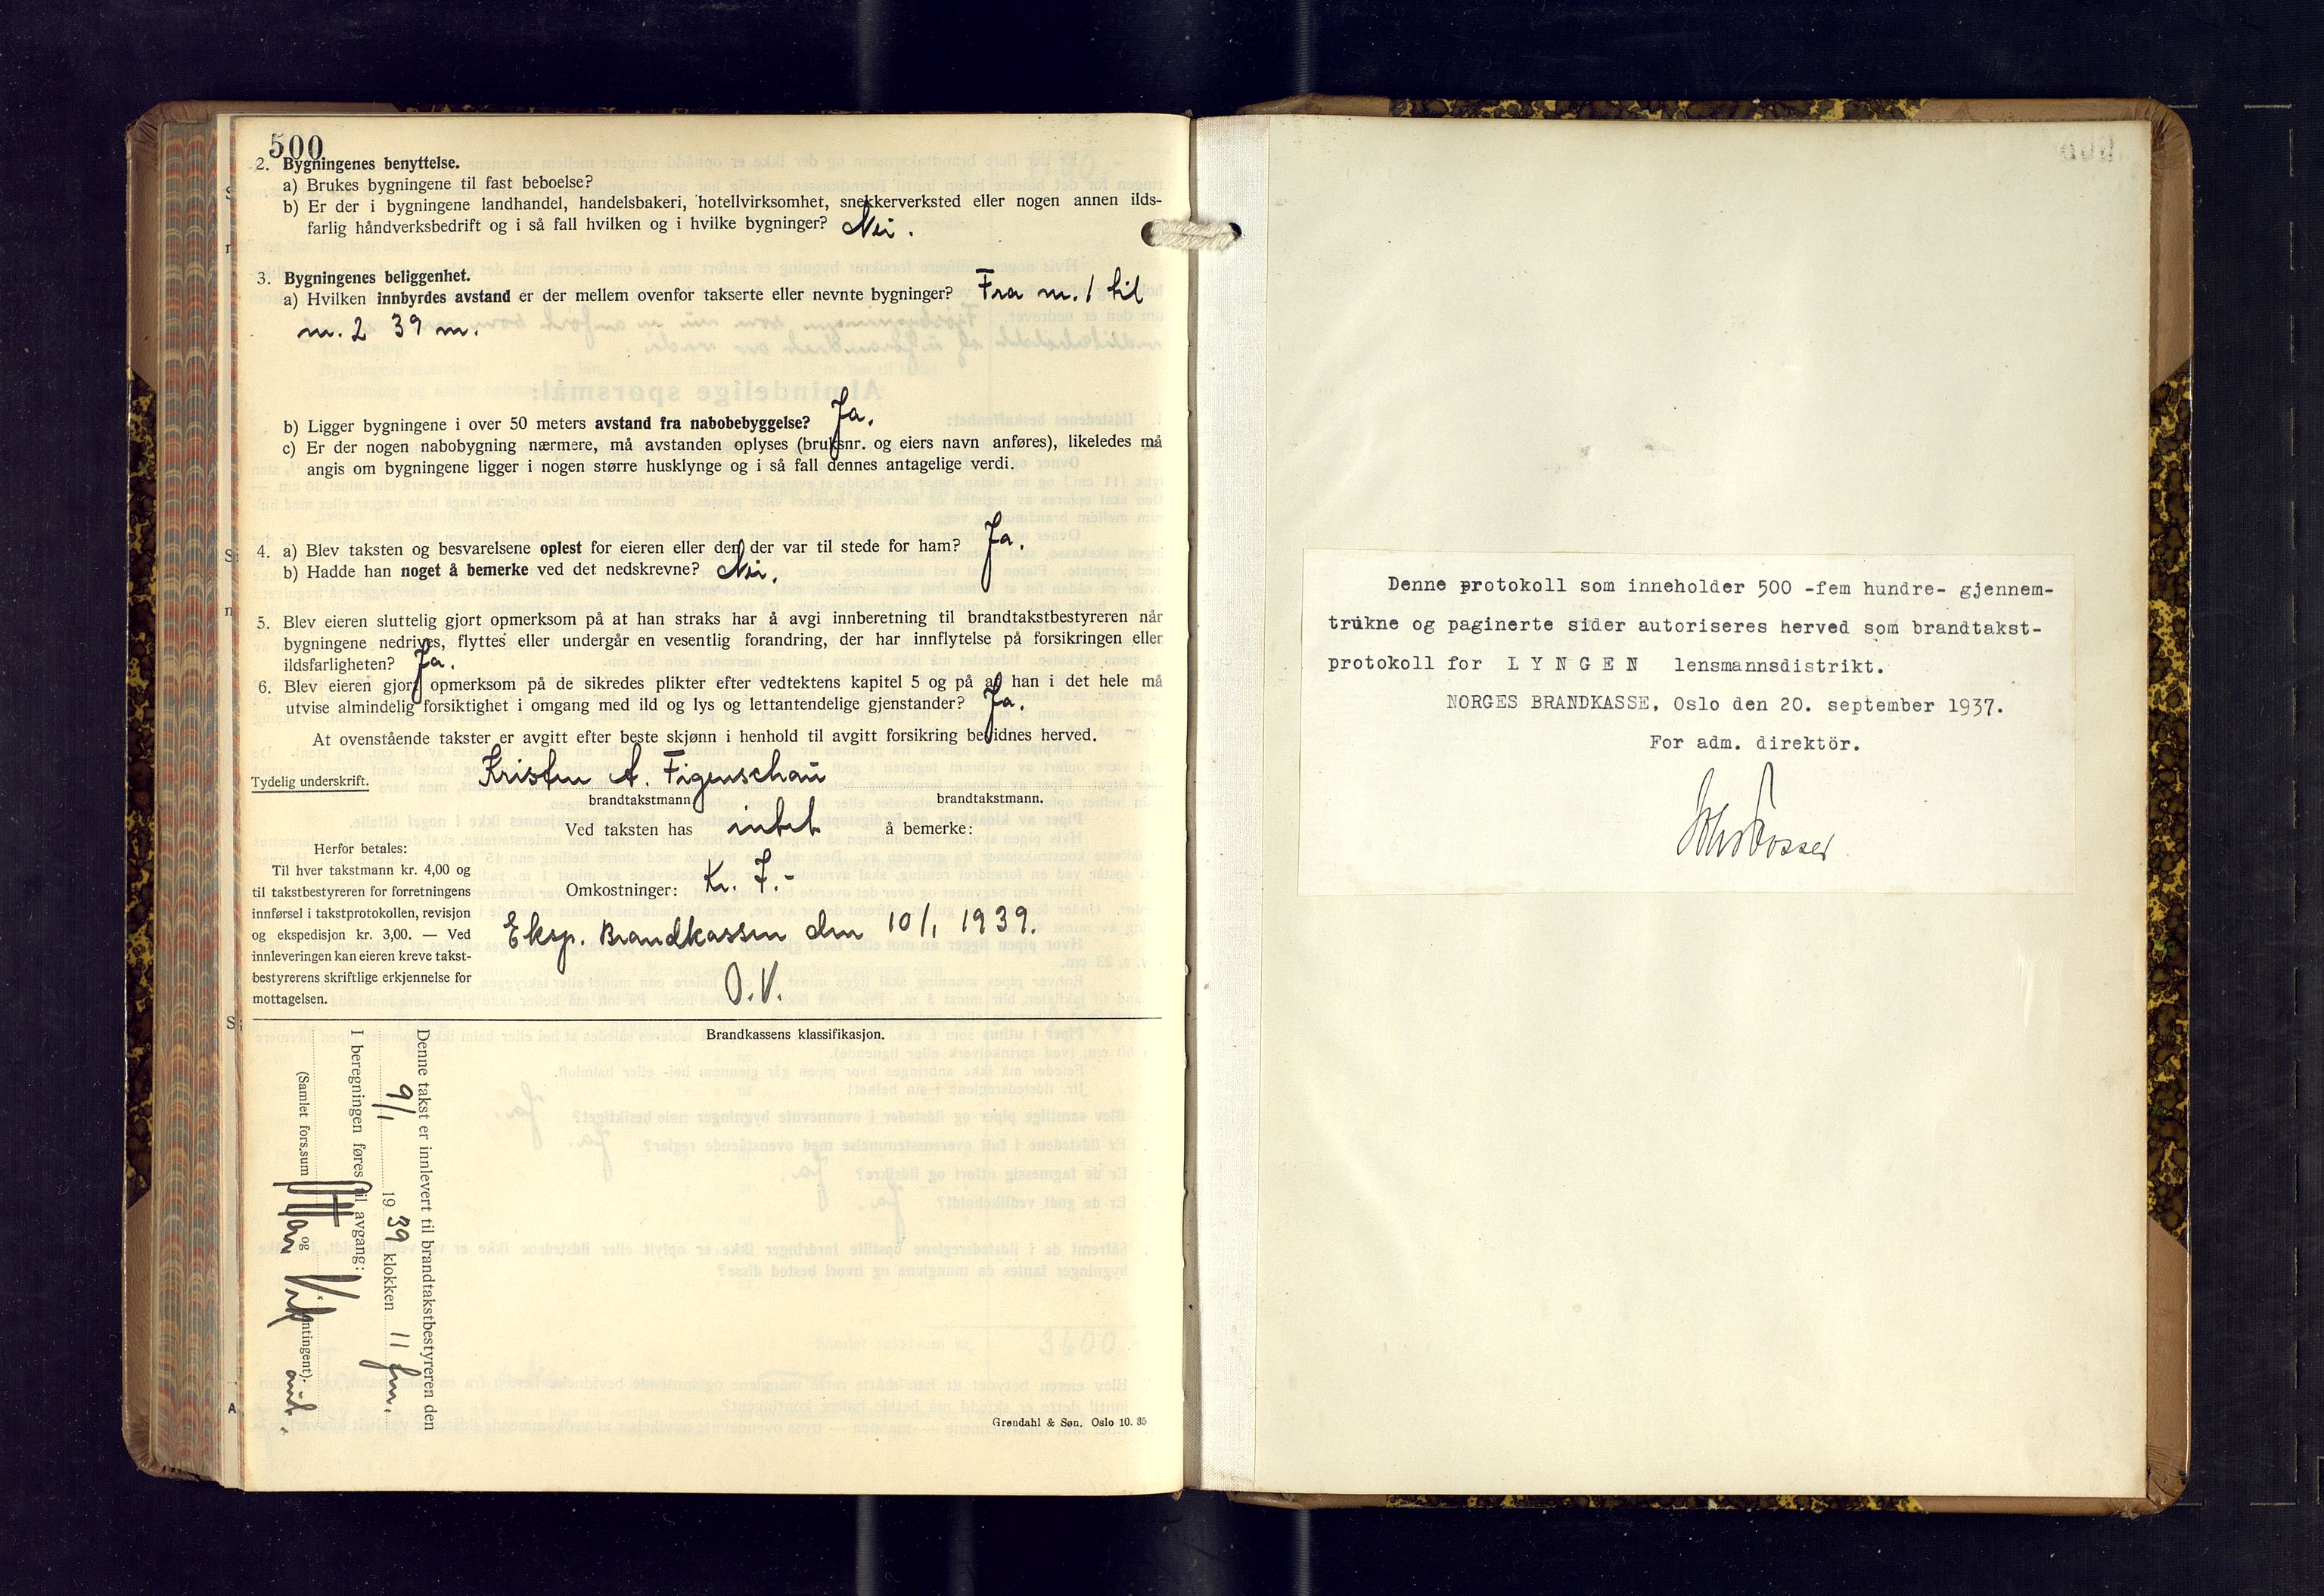 500
2. Bygningenes benyttelse.
a) Brukes bygningene til fast beboelse?
b) Er der i bygningene landhandel, handelsbakeri, hotellvirksomhet, snekkerverksted eller nogen annen ilds-
farlig håndverksbedrift og i så fall hvilken og i hvilke bygninger? Nei.
3. Bygningenes beliggenhet.
a) Hvilken innbyrdes avstand er der mellem ovenfor takserte eller nevnte bygninger? Fra nr. 1 til
nr. 2 39 m.
b) Ligger bygningene i over 50 meters avstand fra nabobebyggelse? Ja.
c) Er der nogen nabobygning nærmere, må avstanden oplyses (bruksnr. og eiers navn anføres), likeledes må
angis om bygningene ligger i nogen større husklynge og i så fall dennes antagelige verdi.
4. a) Blev taksten og besvarelsene oplest for eieren eller den der var til stede for ham? Ja.
b) Hadde han noget å bemerke ved det nedskrevne? Nei.
5. Blev eieren sluttelig gjort opmerksom på at han straks har å avgi innberetning til brandtakstbestyreren når
bygningene nedrives, flyttes eller undergår en vesentlig forandring, der har innflytelse på forsikringen eller
ildsfarligheten? Ja.
6. Blev eieren gjort opmerksom på de sikredes plikter efter vedtektens kapitel 5 og på at han i det hele må
utvise almindelig forsiktighet i omgang med ild og lys og lettantendelige gjenstander? Ja.
At ovenstående takster er avgitt efter beste skjønn i henhold til avgitt forsikring bevidnes herved.
Tydelig underskrift. Kristen A. Figenschau
brandtakstmann brandtakstmann.
Ved taksten has intet å bemerke:
Herfor betales:
Til hver takstmann kr. 4,00 og
til takstbestyreren for forretningens
innførsel i takstprotokollen, revisjon
og ekspedisjon kr. 3,00. — Ved
innleveringen kan eieren kreve takst-
bestyrerens skriftlige erkjennelse for
mottagelsen.
Omkostninger: Kr. 7.-
Eksp. Brandkassen den 10/1 1939.
O.V.
Brandkassens klassifikasjon.
Denne takst er innlevert til brandtakstbestyreren den
9/1 1939 klokken 11 fm.
I beregningen føres til avgang:
(Samlet fors.sum og kontingent).
Vik
Grøndahl & Søn. Oslo 10. 35
Denne protokoll som inneholder 500 -fem hundre- gjennem-
trukne og paginerte sider autoriseres herved som brandtakst-
protokoll for L Y N G E N lensmannsdistrikt.
NORGES BRANDKASSE, Oslo den 20. september 1937.
For adm. direktör.